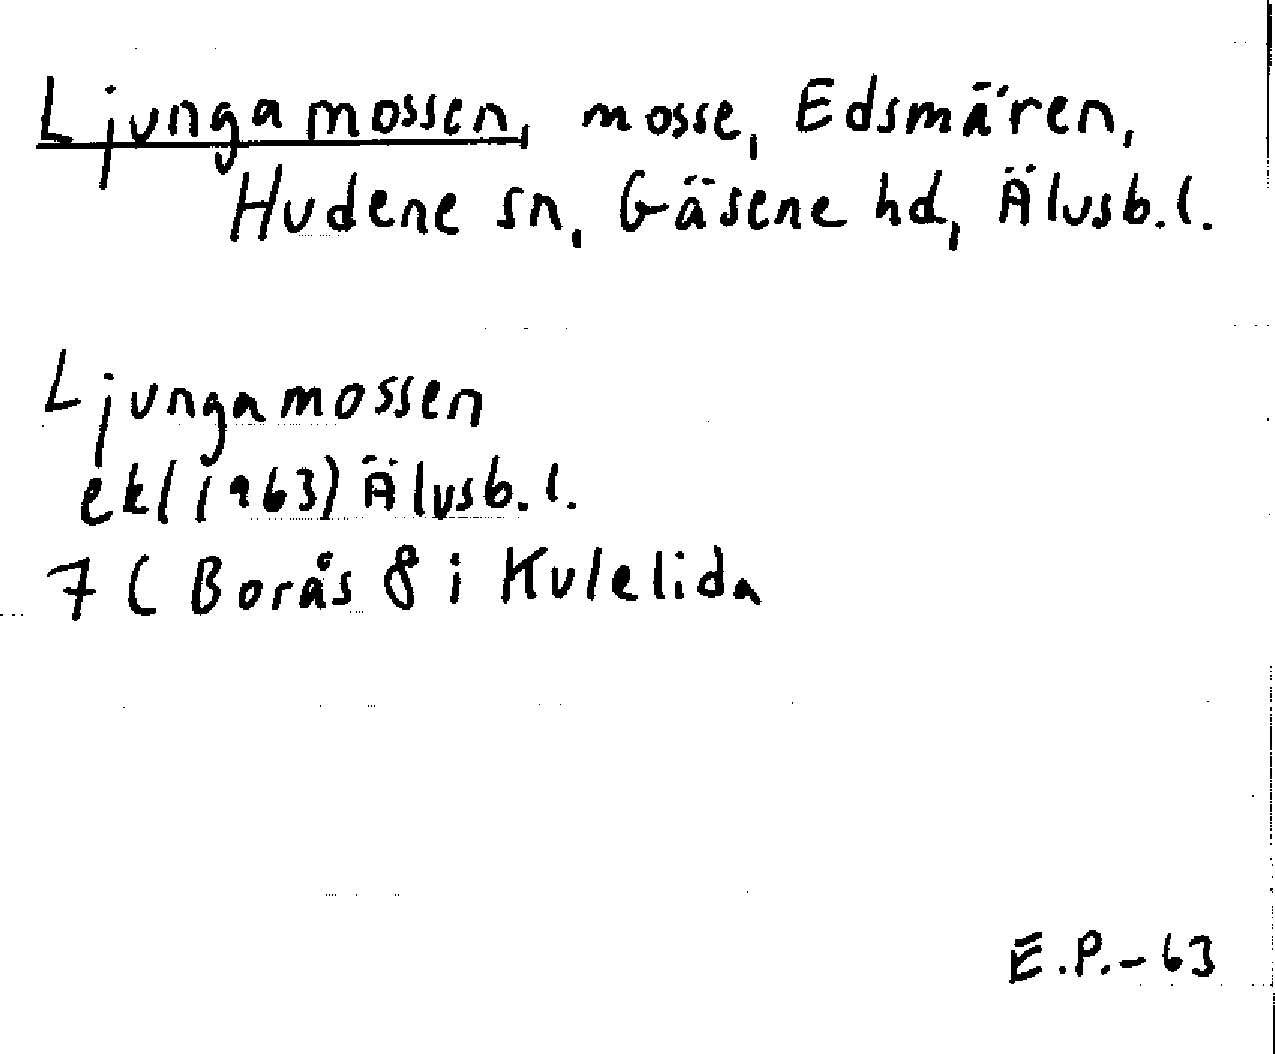 Ljungamossen, mosse, Edsmären,
Hudene sn, Gäsene hd, Älvsb.l.
Ljungamossen
ekl(1963) Älvsb.l.
7C Borås 8 i Kulelida
E.P.-63